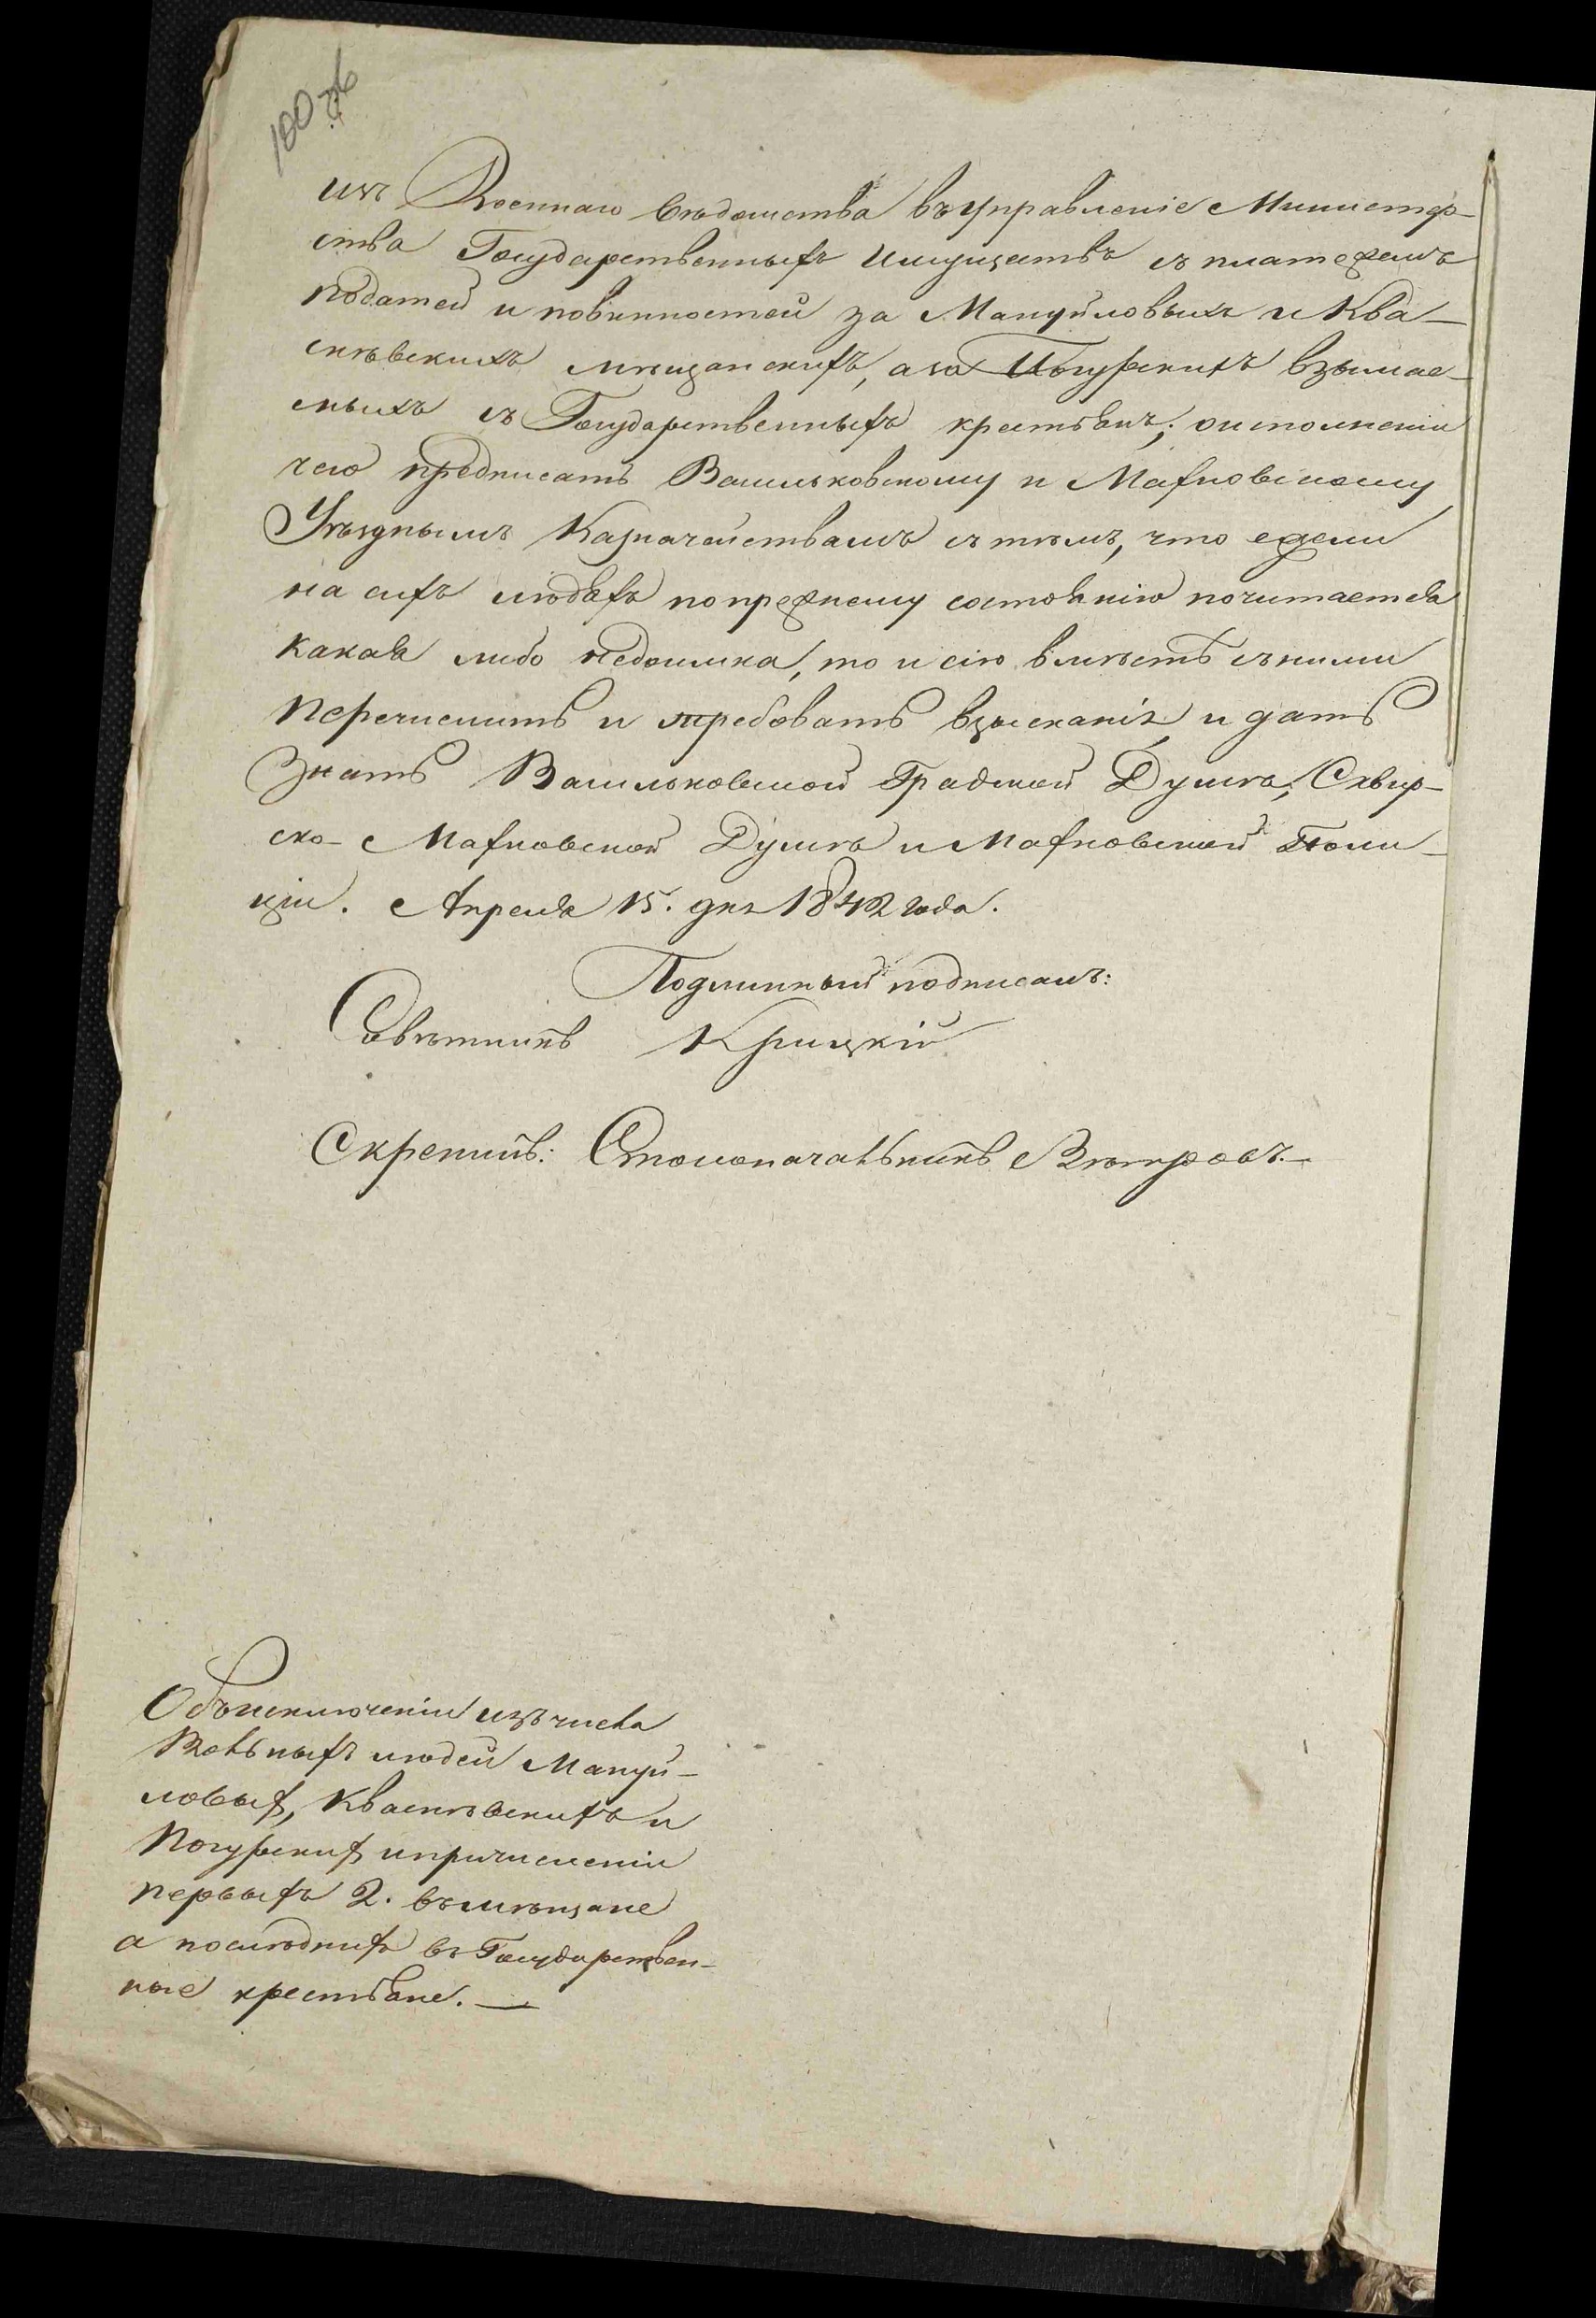 100 об
изъ Военнаго вѣдомства въ управленіе Министер-
ства Государственныхъ Имуществъ съ платежемъ
податей и повинностей за Мануйловыхъ и Ква-
снѣвскихъ мѣщанскихъ, а за Погурскихъ взымае-
мыхъ съ Государственныхъ крестьянъ; о исполненіи
чего предписать Васильковскому и Махновскому
Уѣзднымъ Казначействамъ съ тѣмъ, что ежели
на сихъ людяхъ по прежнему состоянію почитается
какая либо недоимка, то и сію вмѣстѣ съ ними
перечислить и требовать взысканія и дать
знать Васильковской Градской Думѣ, Сквир-
ско-Махновской Думѣ и Махновской Поли-
ціи. Апреля 15. дня 1842 года.
Подлинный подписалъ:
Совѣтникъ Крицкій
Скрепилъ: Столоначальникъ Вѣтровъ.
Объ исключеніи изъ числа
Вольныхъ людей Мануй-
ловых, Кваснѣвскихъ и
Погурских и причисленіи
первыхъ 2. въ мѣщане
а послѣднихъ въ Государствен-
ные крестьяне.